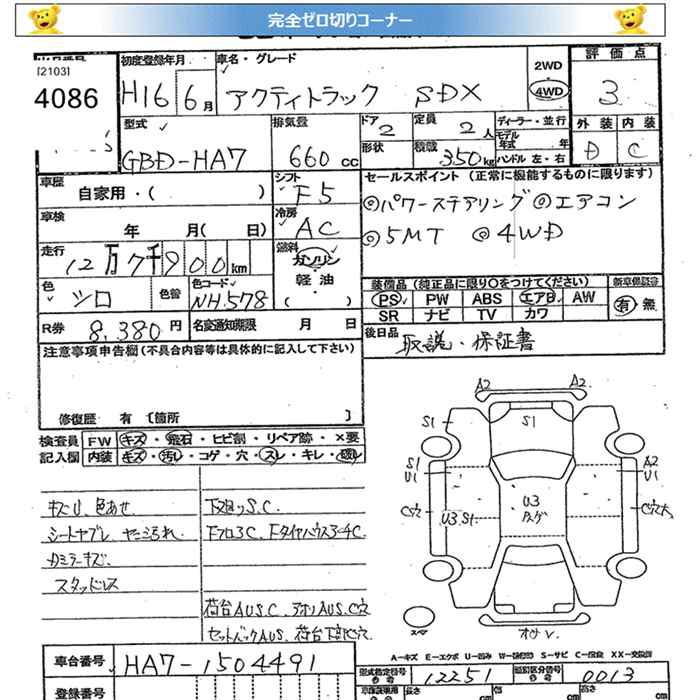 完全ゼロ切りコーナー
[2103]
4086
初度登録年月
H16 6月
車名・グレード
アクティトラック SDX
2WD
4WD
評価点
3
外装 内装
D C
型式
GBD-HA7
排気量
660cc
ドア
2
形状
定員
2人
積載
350kg
ディーラー・並行
モデル年式 年
ハンドル 左・右
車歴
自家用・( )
シフト
F5
車検
年 月( 日)
冷房
AC
走行
12万7千900km
燃料
ガソリン
軽油
( )
色
シロ
色替
色コード
NH.578
R券 8,380円
名変通知期限 月 日
セールスポイント(正常に機能するものに限ります)
◎パワーステアリング ◎エアコン
◎5MT ◎4WD
装備品(純正品に限り○をつけてください)
新車保証書
PS PW ABS エアB AW
SR ナビ TV カワ
有・無
後日品
取説・保証書
注意事項申告欄(不具合内容等は具体的に記入して下さい)
修復歴 有〔箇所 〕
検査員記入欄
FW キズ・飛石・ヒビ割・リペア跡・×要
内装 キズ・汚レ・コゲ・穴・スレ・キレ・破レ
キズU、色あせ
シートヤブレ、ヤニ汚れ
カミラーキズ
スタッドレス
下廻りS.C.
FフロアC、Fタイヤハウス3-4C
荷台AUS.C、アオリAUS.C穴
セットバックAUS、荷台下部C穴
A2 A2
S1 S1
S1
U1
A2
U1
C穴 U3 S1
U3
タメゲ
C穴大
スペア
オオソV.
A=キズ E=エクボ U=凹み W=波(補修) S=サビ C=腐食 XX=交換済
車台番号 HA7-1504491
型式指定番号
12251
類別区分番号
0013
登録番号
長さ cm
幅 cm
高さ cm